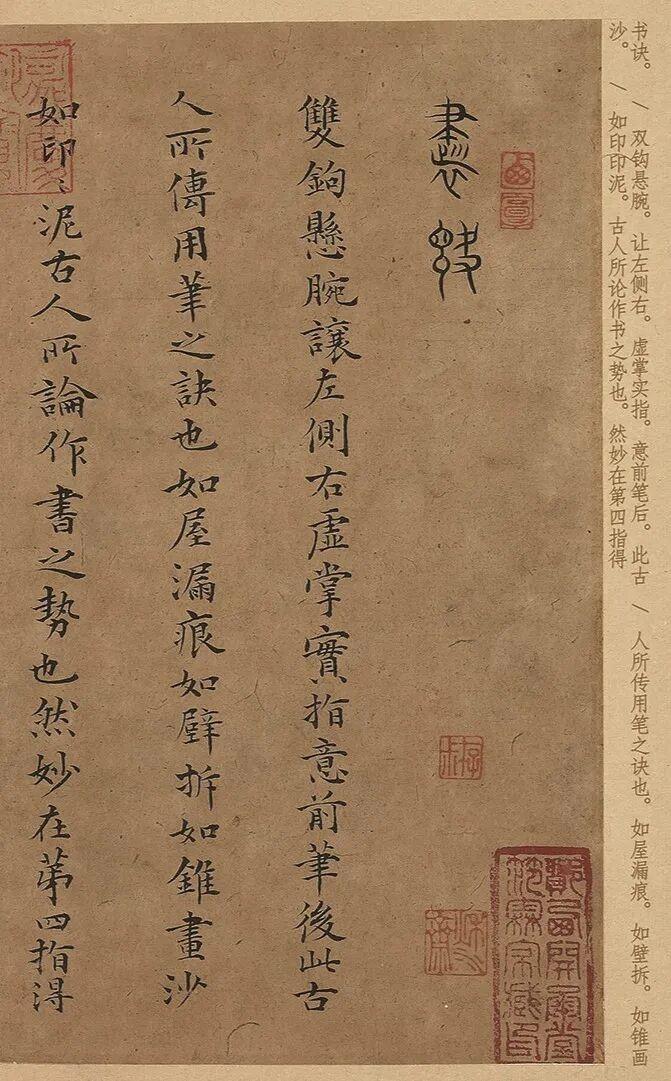 书诀。 / 双钩悬腕。让左侧右。虚掌实指。意前笔后。此古 / 人所传用笔之诀也。如屋漏痕。如壁拆。如锥画
沙。 / 如印印泥。古人所论作书之势也。然妙在第四指得
書訣
雙鉤懸腕讓左側右虛掌實指意前筆後此古
人所傳用筆之訣也如屋漏痕如壁拆如錐畫沙
如印〻泥古人所論作書之勢也然妙在第四指得